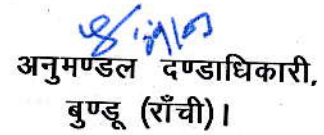 अनुमण्डल दण्डाधिकारी,
बुण्डू (राँची)।